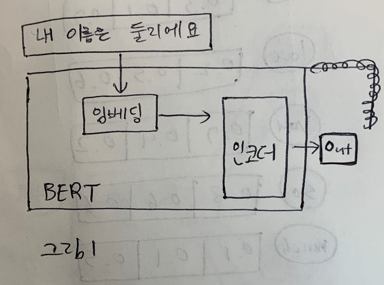 내 이름은 둘리에요
임베딩
인코더
Out
BERT
그림1